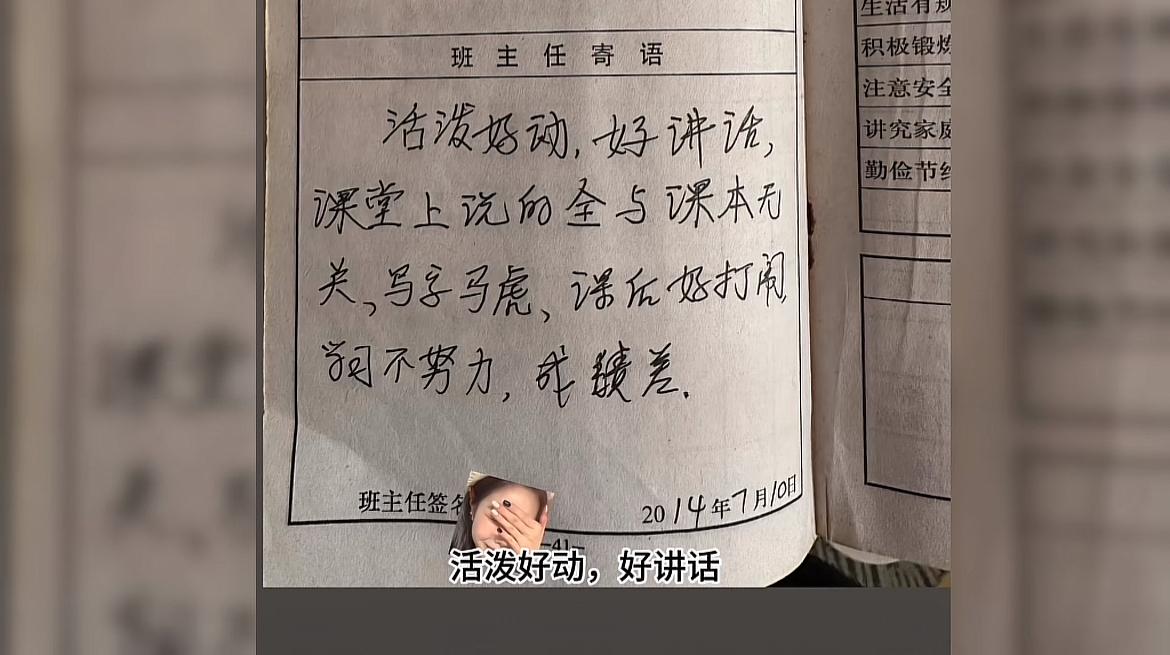 班主任寄语
活泼好动,好讲话,
课堂上说的全与课本无
关,写字马虎、课后好打闹
学习不努力,成绩差.
班主任签名
2014年7月10日
41
活泼好动，好讲话
生活有规
积极锻炼
注意安全
讲究家庭
勤俭节约